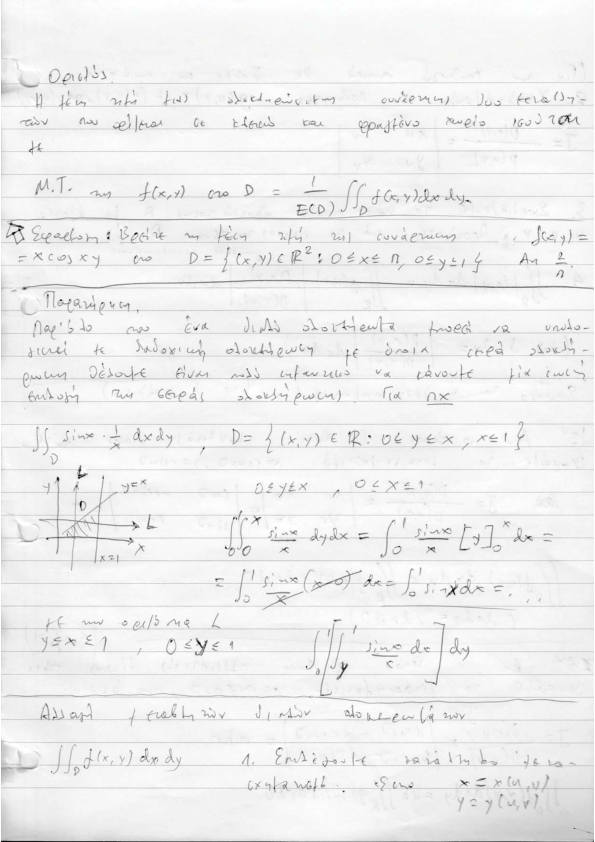 Ορισμός:
Η μέση τιμή μιας ολοκληρώσιμης συνάρτησης δυο μεταβλη-
τών που ορίζεται σε κλειστό και φραγμένο χωρίο ισούται
με
Μ.Τ. της f(x,y) στο D = 1/E(D) ∬_D f(x,y) dx dy.
Εφαρμογη: Βρείτε τη μέση τιμή της συνάρτησης f(x,y) =
= x cos xy στο D = { (x,y) ∈ ℝ² : 0 ≤ x ≤ π, 0 ≤ y ≤ 1 } Απ 2/π.
Παρατήρηση.
Παρ'όλο που ένα διπλό ολοκλήρωμα μπορεί να υπολο-
γιστεί με διαδοχική ολοκλήρωση με όποια σειρά ολοκλή-
ρωσης θέλουμε είναι πολύ σημαντικό να κάνουμε μία σωστή
επιλογή της σειράς ολοκλήρωσης. Για πχ
∬_D sinx · 1/x dx dy , D = { (x,y) ∈ ℝ : 0 ≤ y ≤ x , x ≤ 1 }
y L y=x D L x x=1
0 ≤ y ≤ x , 0 ≤ x ≤ 1
∫_0^1 ∫_0^x sinx/x dy dx = ∫_0^1 sinx/x [y]_0^x dx =
= ∫_0^1 sinx/x (x-0) dx = ∫_0^1 sinx dx = ...
με την ορίζοντια L
y ≤ x ≤ 1 , 0 ≤ y ≤ 1 ∫_0^1 [ ∫_y^1 sinx/x dx ] dy
Αλλαγή μεταβλητών διπλών ολοκληρωμάτων
∬_D f(x,y) dx dy 1. Επιλέγουμε κατάλληλο μετα-
σχηματισμό. Έστω x = x(u,v)
y = y(u,v)